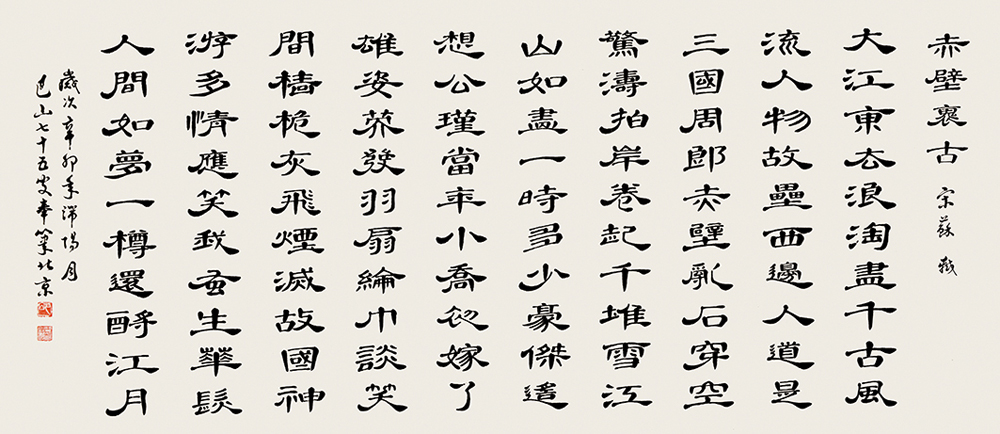 赤壁褱古 宋蘇軾
大江東去浪淘盡千古風
流人物故壘西邊人道是
三國周郎赤壁亂石穿空
驚濤拍岸卷起千堆雪江
山如畫一時多少豪傑遙
想公瑾當年小喬初嫁了
雄姿英發羽扇綸巾談笑
間檣櫓灰飛煙滅故國神
游多情應笑我蚤生華髮
人間如夢一樽還酹江月
歲次辛卯年端陽月
巴山七十五叟北京